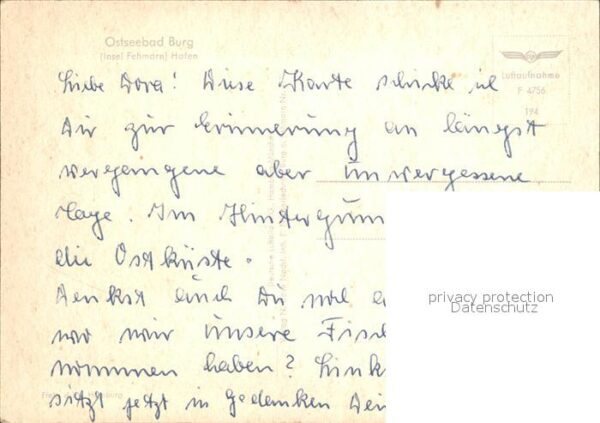 Ostseebad Burg
(Insel Fehmarn) Hafen
Luftaufnahme
F 4756
194
Liebe Dora! Diese Karte schicke ich
Dir zur Erinnerung an längst
vergangene aber unvergessene
Tage. Im Hintergrun
die Ostküste.
Denkst auch Du mal
wo wir unsere Fisc
nommen haben? Link
sitzt jetzt in Gedanken Dein
privacy protection
Datenschutz